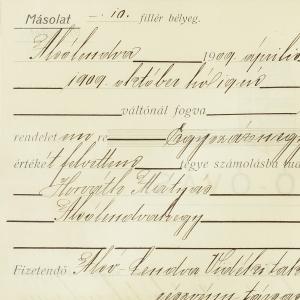 Másolat -.10. fillér bélyeg.
Alsólendva 1909. április
1909. október hó
váltónál fogva
rendelet em re
értékét felvettem tegye számolásba
Horváth Mátyás
Alsólendvahegy
Fizetendő Alsó-Lendva Vidéki tak